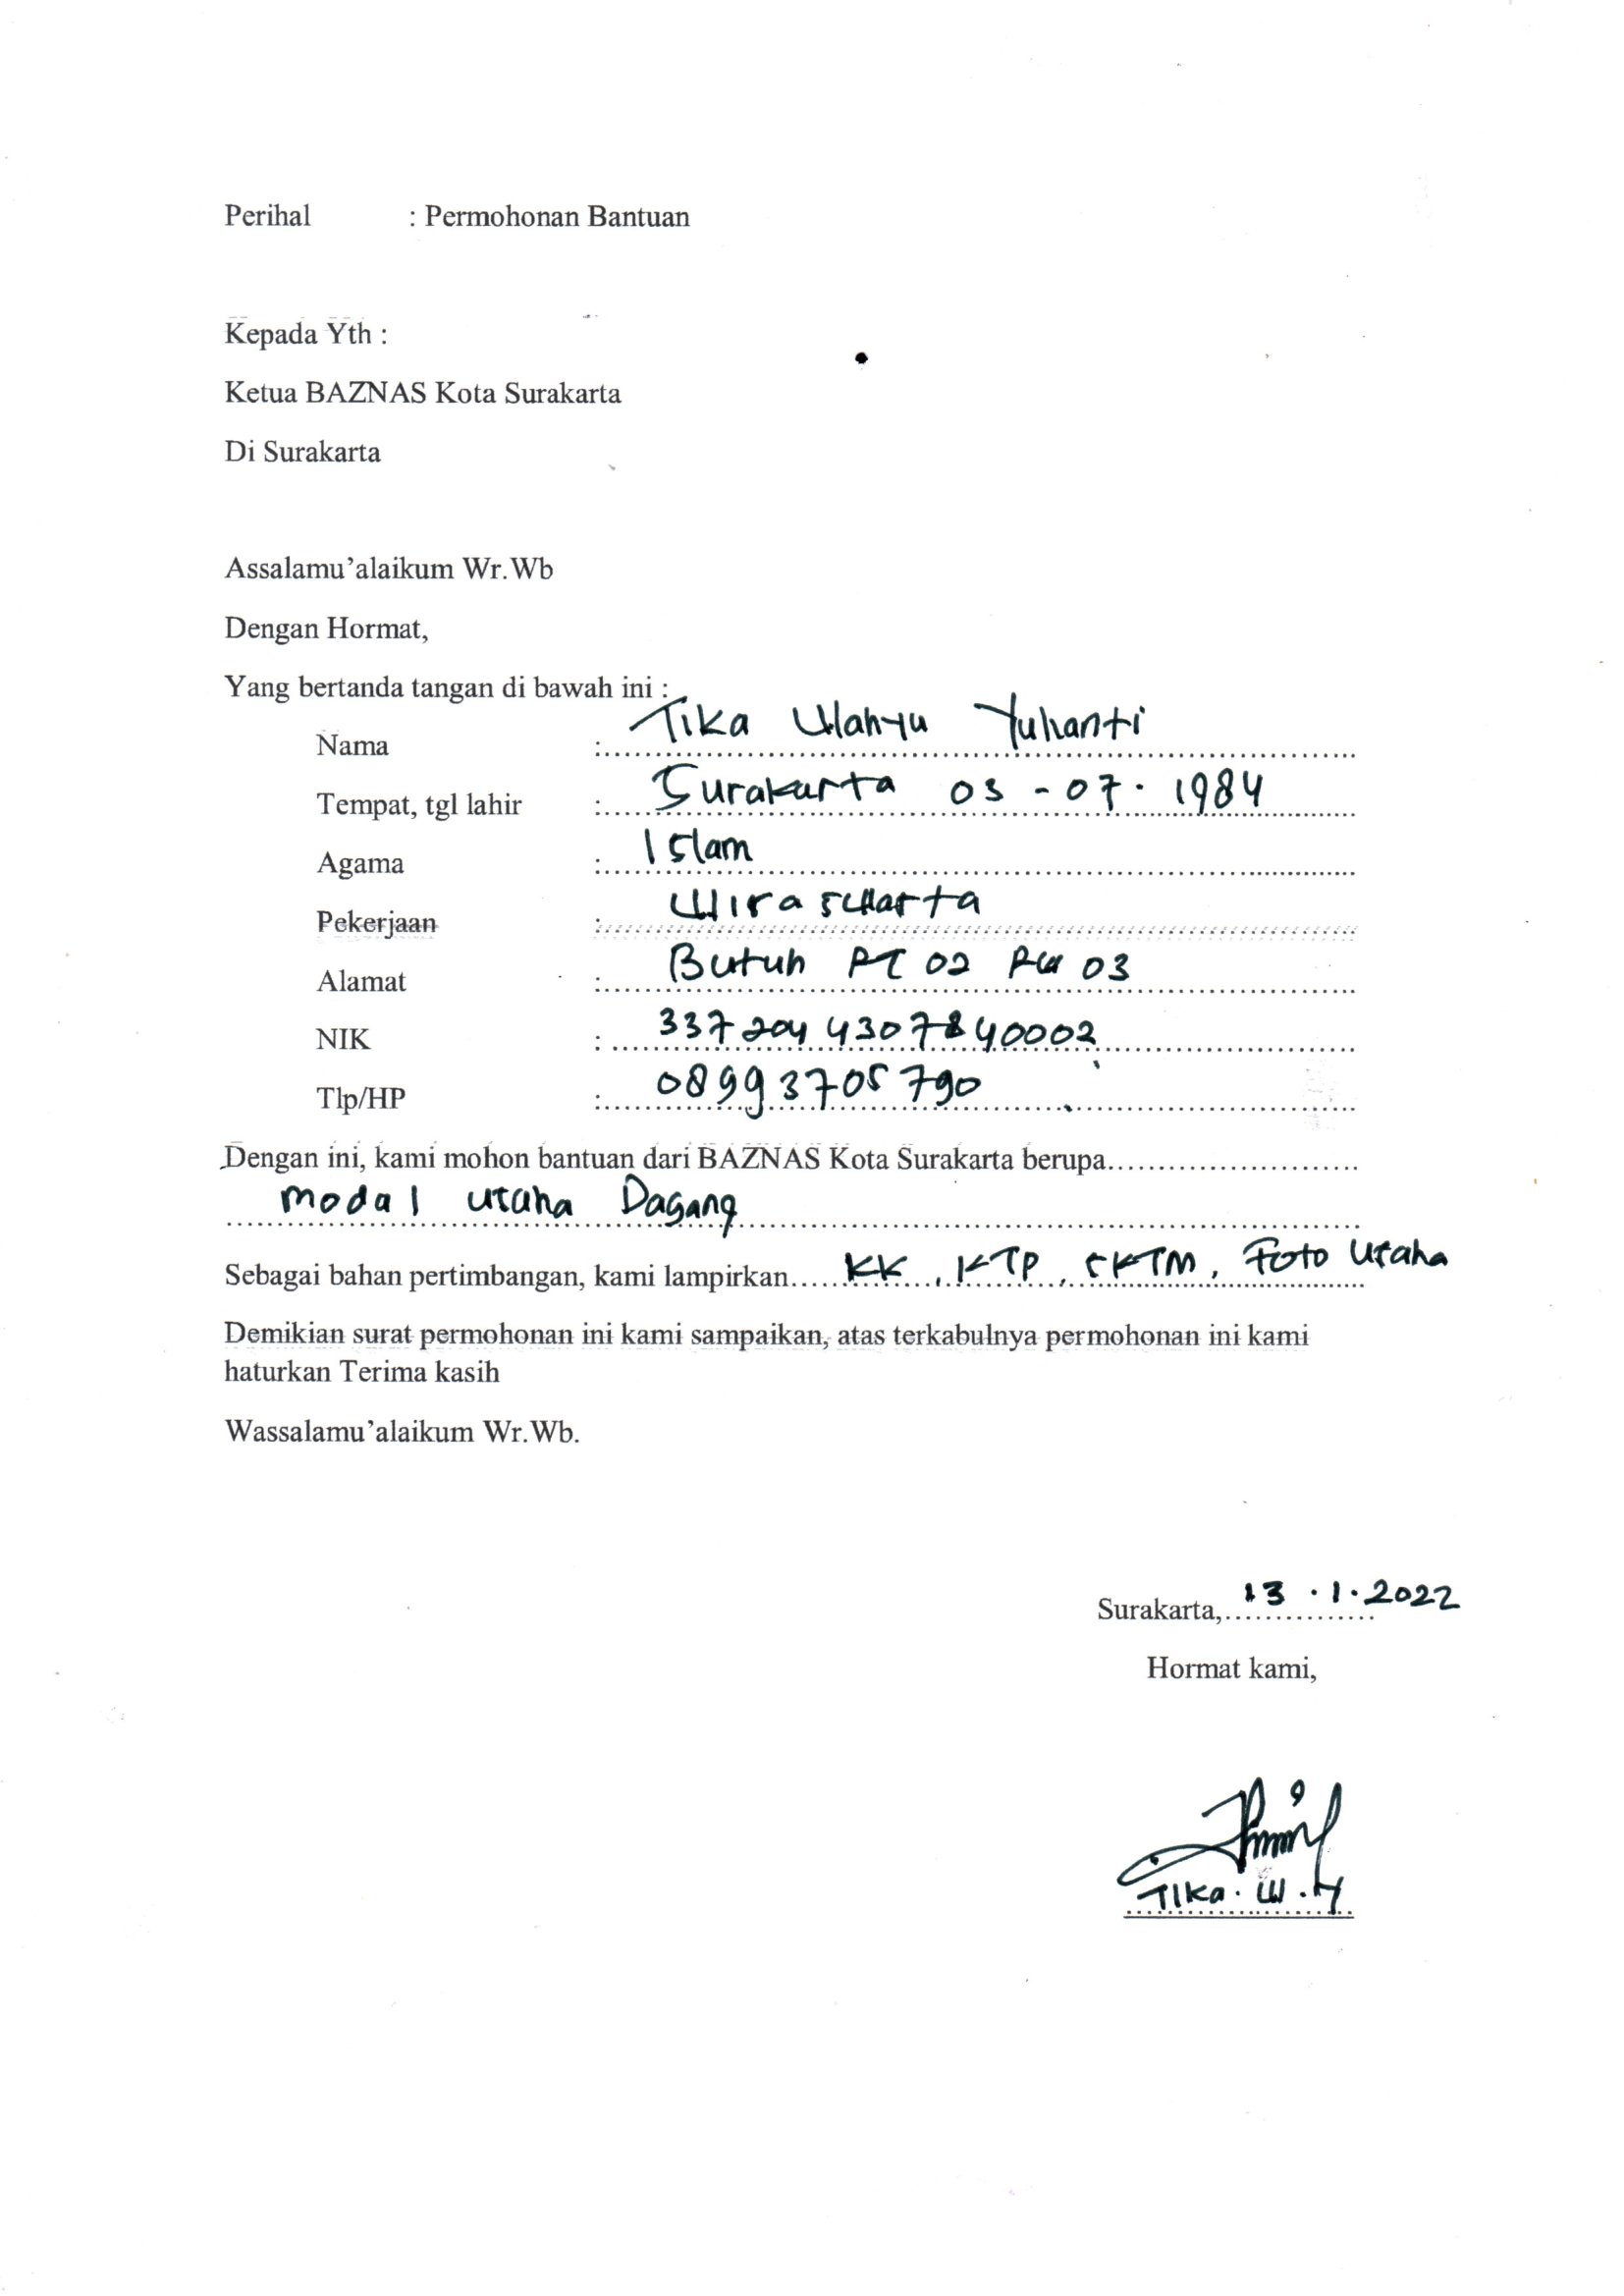 Perihal : Permohonan Bantuan
Kepada Yth :
Ketua BAZNAS Kota Surakarta
Di Surakarta
Assalamu'alaikum Wr.Wb
Dengan Hormat,
Yang bertanda tangan di bawah ini :
Nama : Tika Wahyu Yulianti
Tempat, tgl lahir : Surakarta 03 - 07 . 1984
Agama : Islam
Pekerjaan : Wiraswarta
Alamat : Butuh RT 02 RW 03
NIK : 3372044307840002
Tlp/HP : 08993705790
Dengan ini, kami mohon bantuan dari BAZNAS Kota Surakarta berupa
Modal usaha Dagang
Sebagai bahan pertimbangan, kami lampirkan KK, KTP, SKTM, Foto Usaha
Demikian surat permohonan ini kami sampaikan, atas terkabulnya permohonan ini kami
haturkan Terima kasih
Wassalamu'alaikum Wr.Wb.
Surakarta, 13 . 1 . 2022
Hormat kami,
Tika . W . Y